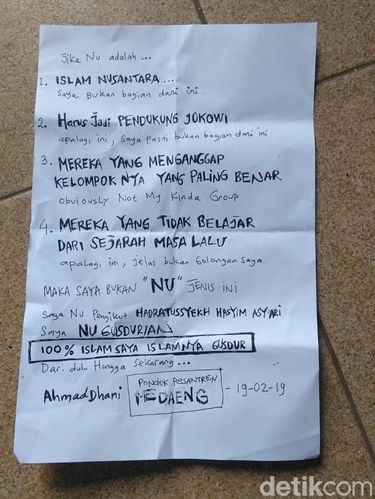 Jika NU adalah ...
1. ISLAM NUSANTARA ...
Saya Bukan bagian dari ini.
2. Harus Jadi PENDUKUNG JOKOWI
apalagi ini, saya pasti bukan bagian dari ini
3. MEREKA YANG MENGANGGAP
KELOMPOK NYA YANG PALING BENAR
Obviously Not My Kinda Group
4. MEREKA YANG TIDAK BELAJAR
DARI SEJARAH MASA LALU
apalagi ini, jelas bukan Golongan saya.
MAKA SAYA BUKAN "NU" JENIS INI
Saya NU Pengikut HADRATUSSYEKH HASYIM ASY'ARI
Saya NU GUSDURIAN
100% ISLAM SAYA ISLAMNYA GUSDUR
Dari dulu Hingga sekarang ...
AhmadDhani PONDOK PESANTREN MEDAENG - 19-02-19
detikcom